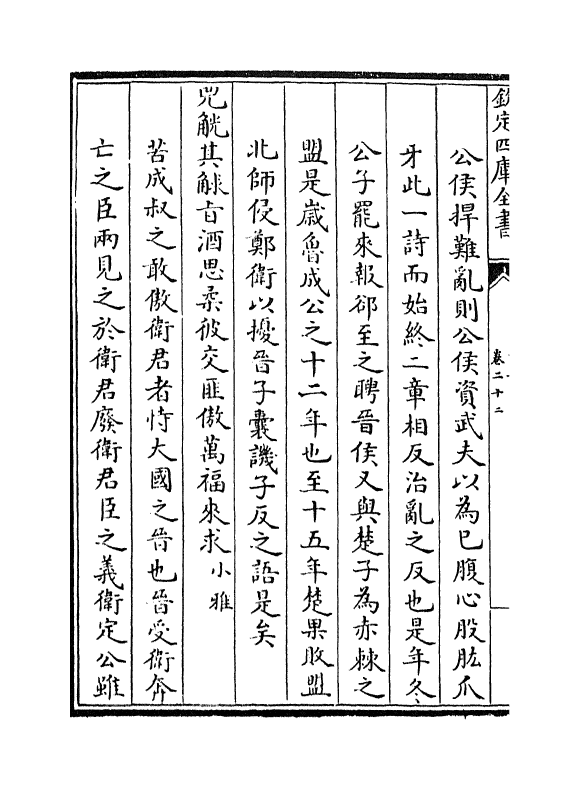 欽定四庫全書
卷二十二
公侯捍難亂則公侯資武夫以為已腹心股肱爪
牙此一詩而始終二章相反治亂之反也是年冬
公子罷來報郤至之聘晉侯又與楚子為赤棘之
盟是嵗魯成公之十二年也至十五年楚果敗盟
北師侵鄭衛以擾晉子囊譏子反之語是矣
兕觥其觩㫖酒思柔彼交匪傲萬福來求小雅
苦成叔之敢傲衛君者恃大國之晉也晉受衛奔
亡之臣兩見之於衛君廢衛君臣之義衛定公雖